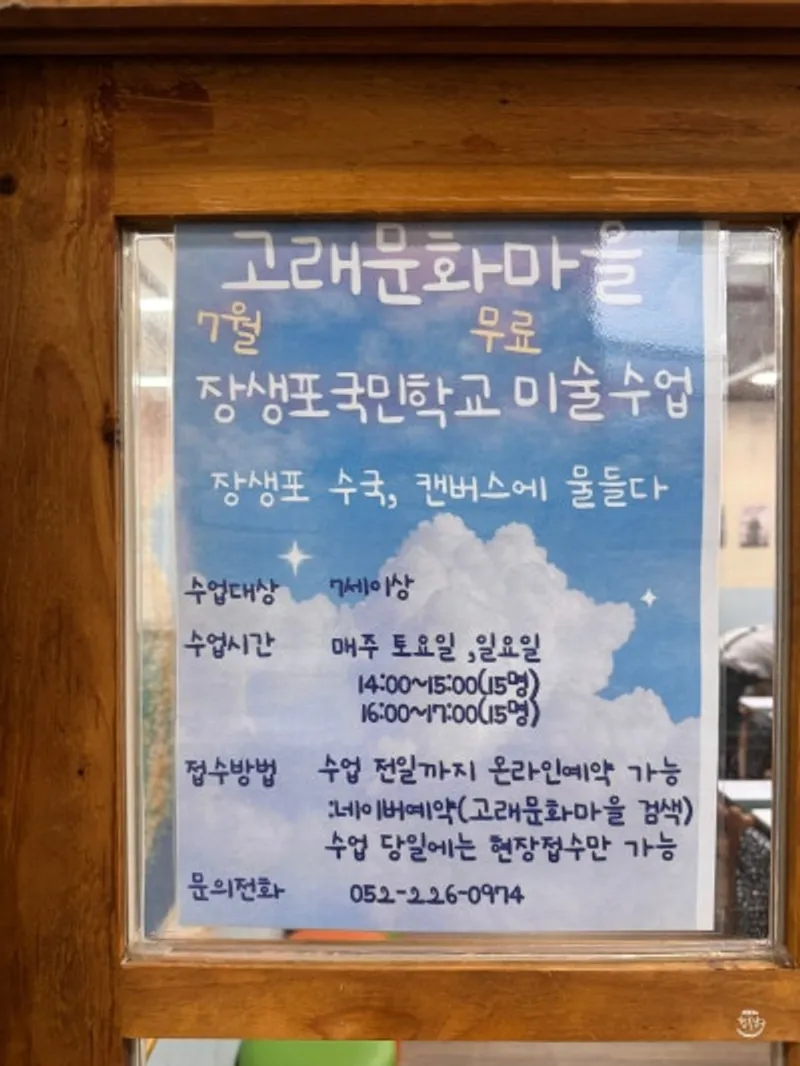 고래문화마을
7월 무료
장생포국민학교 미술수업
장생포 수국, 캔버스에 물들다
수업대상 7세이상
수업시간 매주 토요일 ,일요일
14:00~15:00(15명)
16:00~17:00(15명)
접수방법 수업 전일까지 온라인예약 가능
:네이버예약(고래문화마을 검색)
수업 당일에는 현장접수만 가능
문의전화 052-226-0974